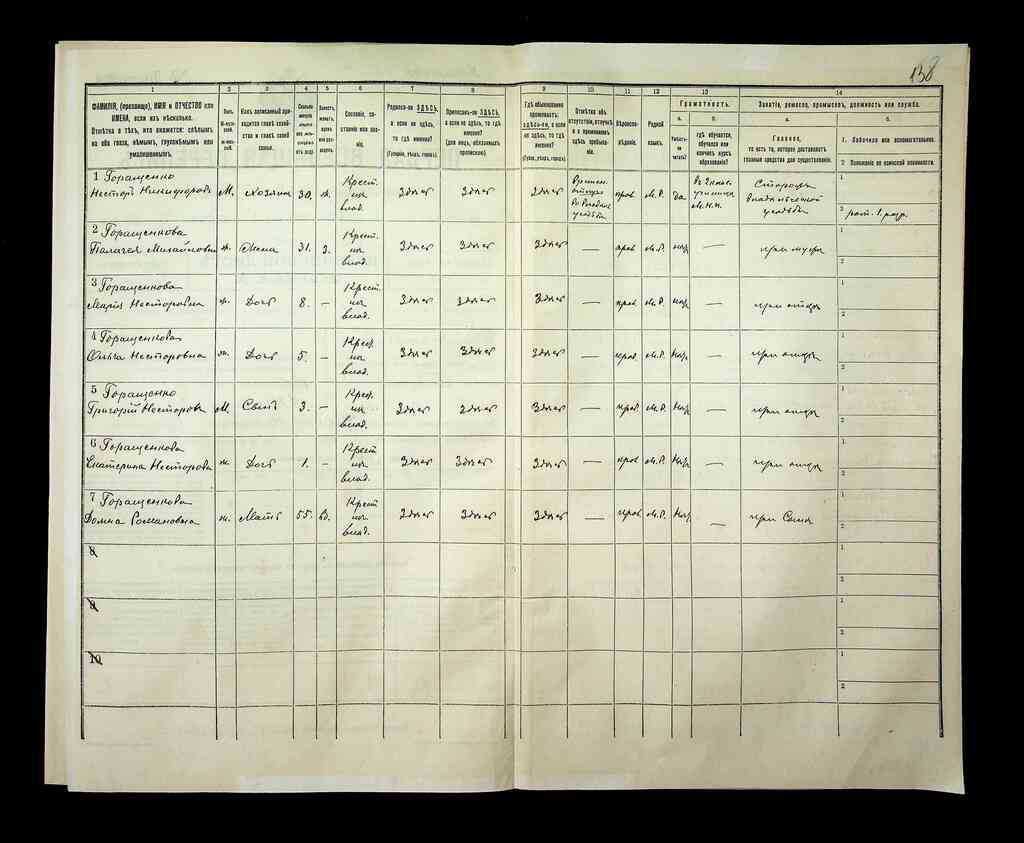 138
1 2 3 4 5 6 7 8 9 10 11 12 13 14
ФАМИЛІЯ, (прозвище), ИМЯ и ОТЧЕСТВО или
ИМЕНА, если ихъ нѣсколько.
Отмѣтка о тѣхъ, кто окажется: слѣпымъ
на оба глаза, нѣмымъ, глухонѣмымъ или
умалишеннымъ.
Полъ.
Какъ записанный при-
ходится главѣ хозяй-
ства и главѣ своей
семьи.
Сословіе, со-
стояніе или зва-
ніе.
Родился-ли ЗДѢСЬ,
а если не здѣсь,
то гдѣ именно?
(Губернія, уѣздъ, городъ).
Приписанъ-ли ЗДѢСЬ,
а если не здѣсь, то гдѣ
именно?
(для лицъ, обязанныхъ
припискою).
Гдѣ обыкновенно
проживаетъ:
здѣсь-ли, а если
не здѣсь, то гдѣ
именно?
(Губ., уѣздъ, городъ).
Отмѣтка объ
отсутствіи, отлучкѣ
и о временномъ
здѣсь пребыва-
ніи.
Вѣроиспо-
вѣданіе.
Родной
языкъ.
Грамотность.
а.
Умѣетъ-
ли
читать?
б.
гдѣ обучается,
обучался или
кончилъ курсъ
образованія?
Занятіе, ремесло, промыселъ, должность или служба.
а.
Главное,
то есть то, которое доставляетъ
главныя средства для существованія.
б.
1. Побочное или вспомогательное.
2. Положеніе по воинской повинности.
1 Горащенко
Несторъ Никифоровъ М. Хозяинъ 30. ж. Крест. изъ влад. Здѣсь Здѣсь Здѣсь прав. М.Р. да Сторожъ
усадьбы
1
2
2 Горащенкова
Палагея Михайловна ж. Жена 31. З. Крест. изъ влад. Здѣсь Здѣсь Здѣсь — прав. М.Р. — при мужѣ
1
2
3 Горащенкова
Марія Несторовна ж. Дочь 8. – Крест. изъ влад. Здѣсь Здѣсь Здѣсь — прав. М.Р. — при отцѣ
1
2
4 Горащенкова
Ольга Несторовна ж. Дочь 5. – Крест. изъ влад. Здѣсь Здѣсь Здѣсь — прав. М.Р. — при отцѣ
1
2
5 Горащенко
Григорій Несторовъ М. Сынъ 3. – Крест. изъ влад. Здѣсь Здѣсь Здѣсь — прав. М.Р. — при отцѣ
1
2
6 Горащенкова
Екатерина Несторова ж. Дочь 1. – Крест. изъ влад. Здѣсь Здѣсь Здѣсь — прав. М.Р. — при отцѣ
1
2
7 Горащенкова
Домна Романовна ж. Мать 55. вд. Крест. изъ влад. Здѣсь Здѣсь Здѣсь — прав. М.Р. — при Сынѣ
1
2
8
1
2
9
1
2
10
1
2